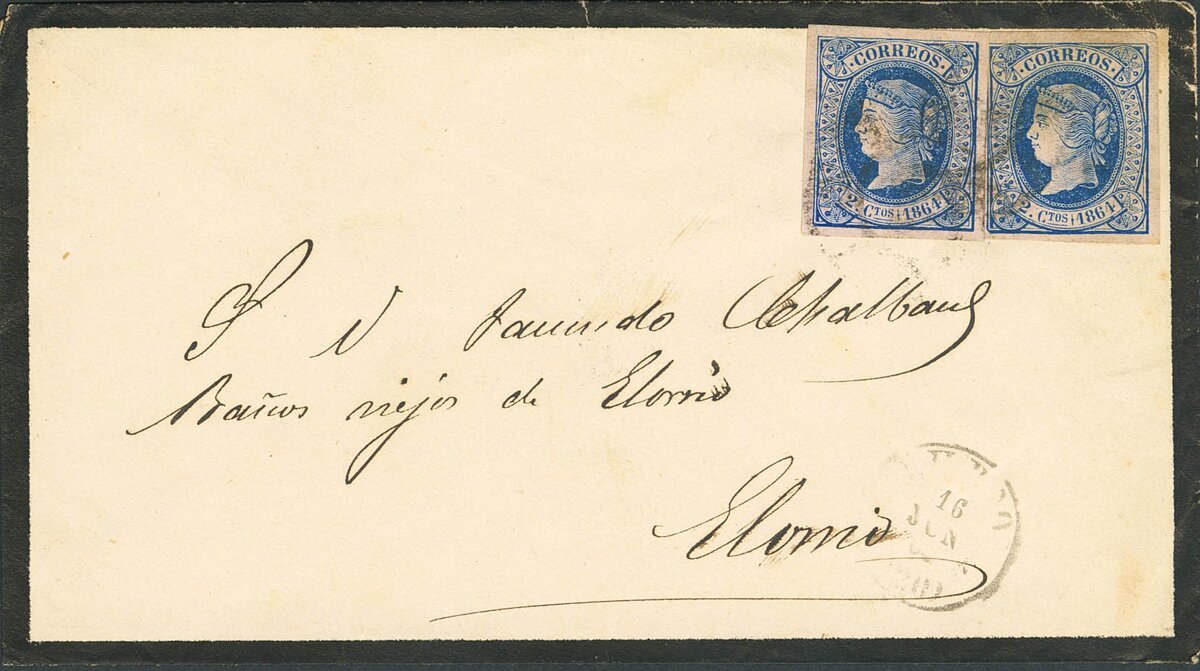 CORREOS
2. CTOS 1864 P
CORREOS
2. CTOS 1864 P
S D Jacundo Chalbaud
Baños viejos de Elorrio
Elorrio
16
JUN